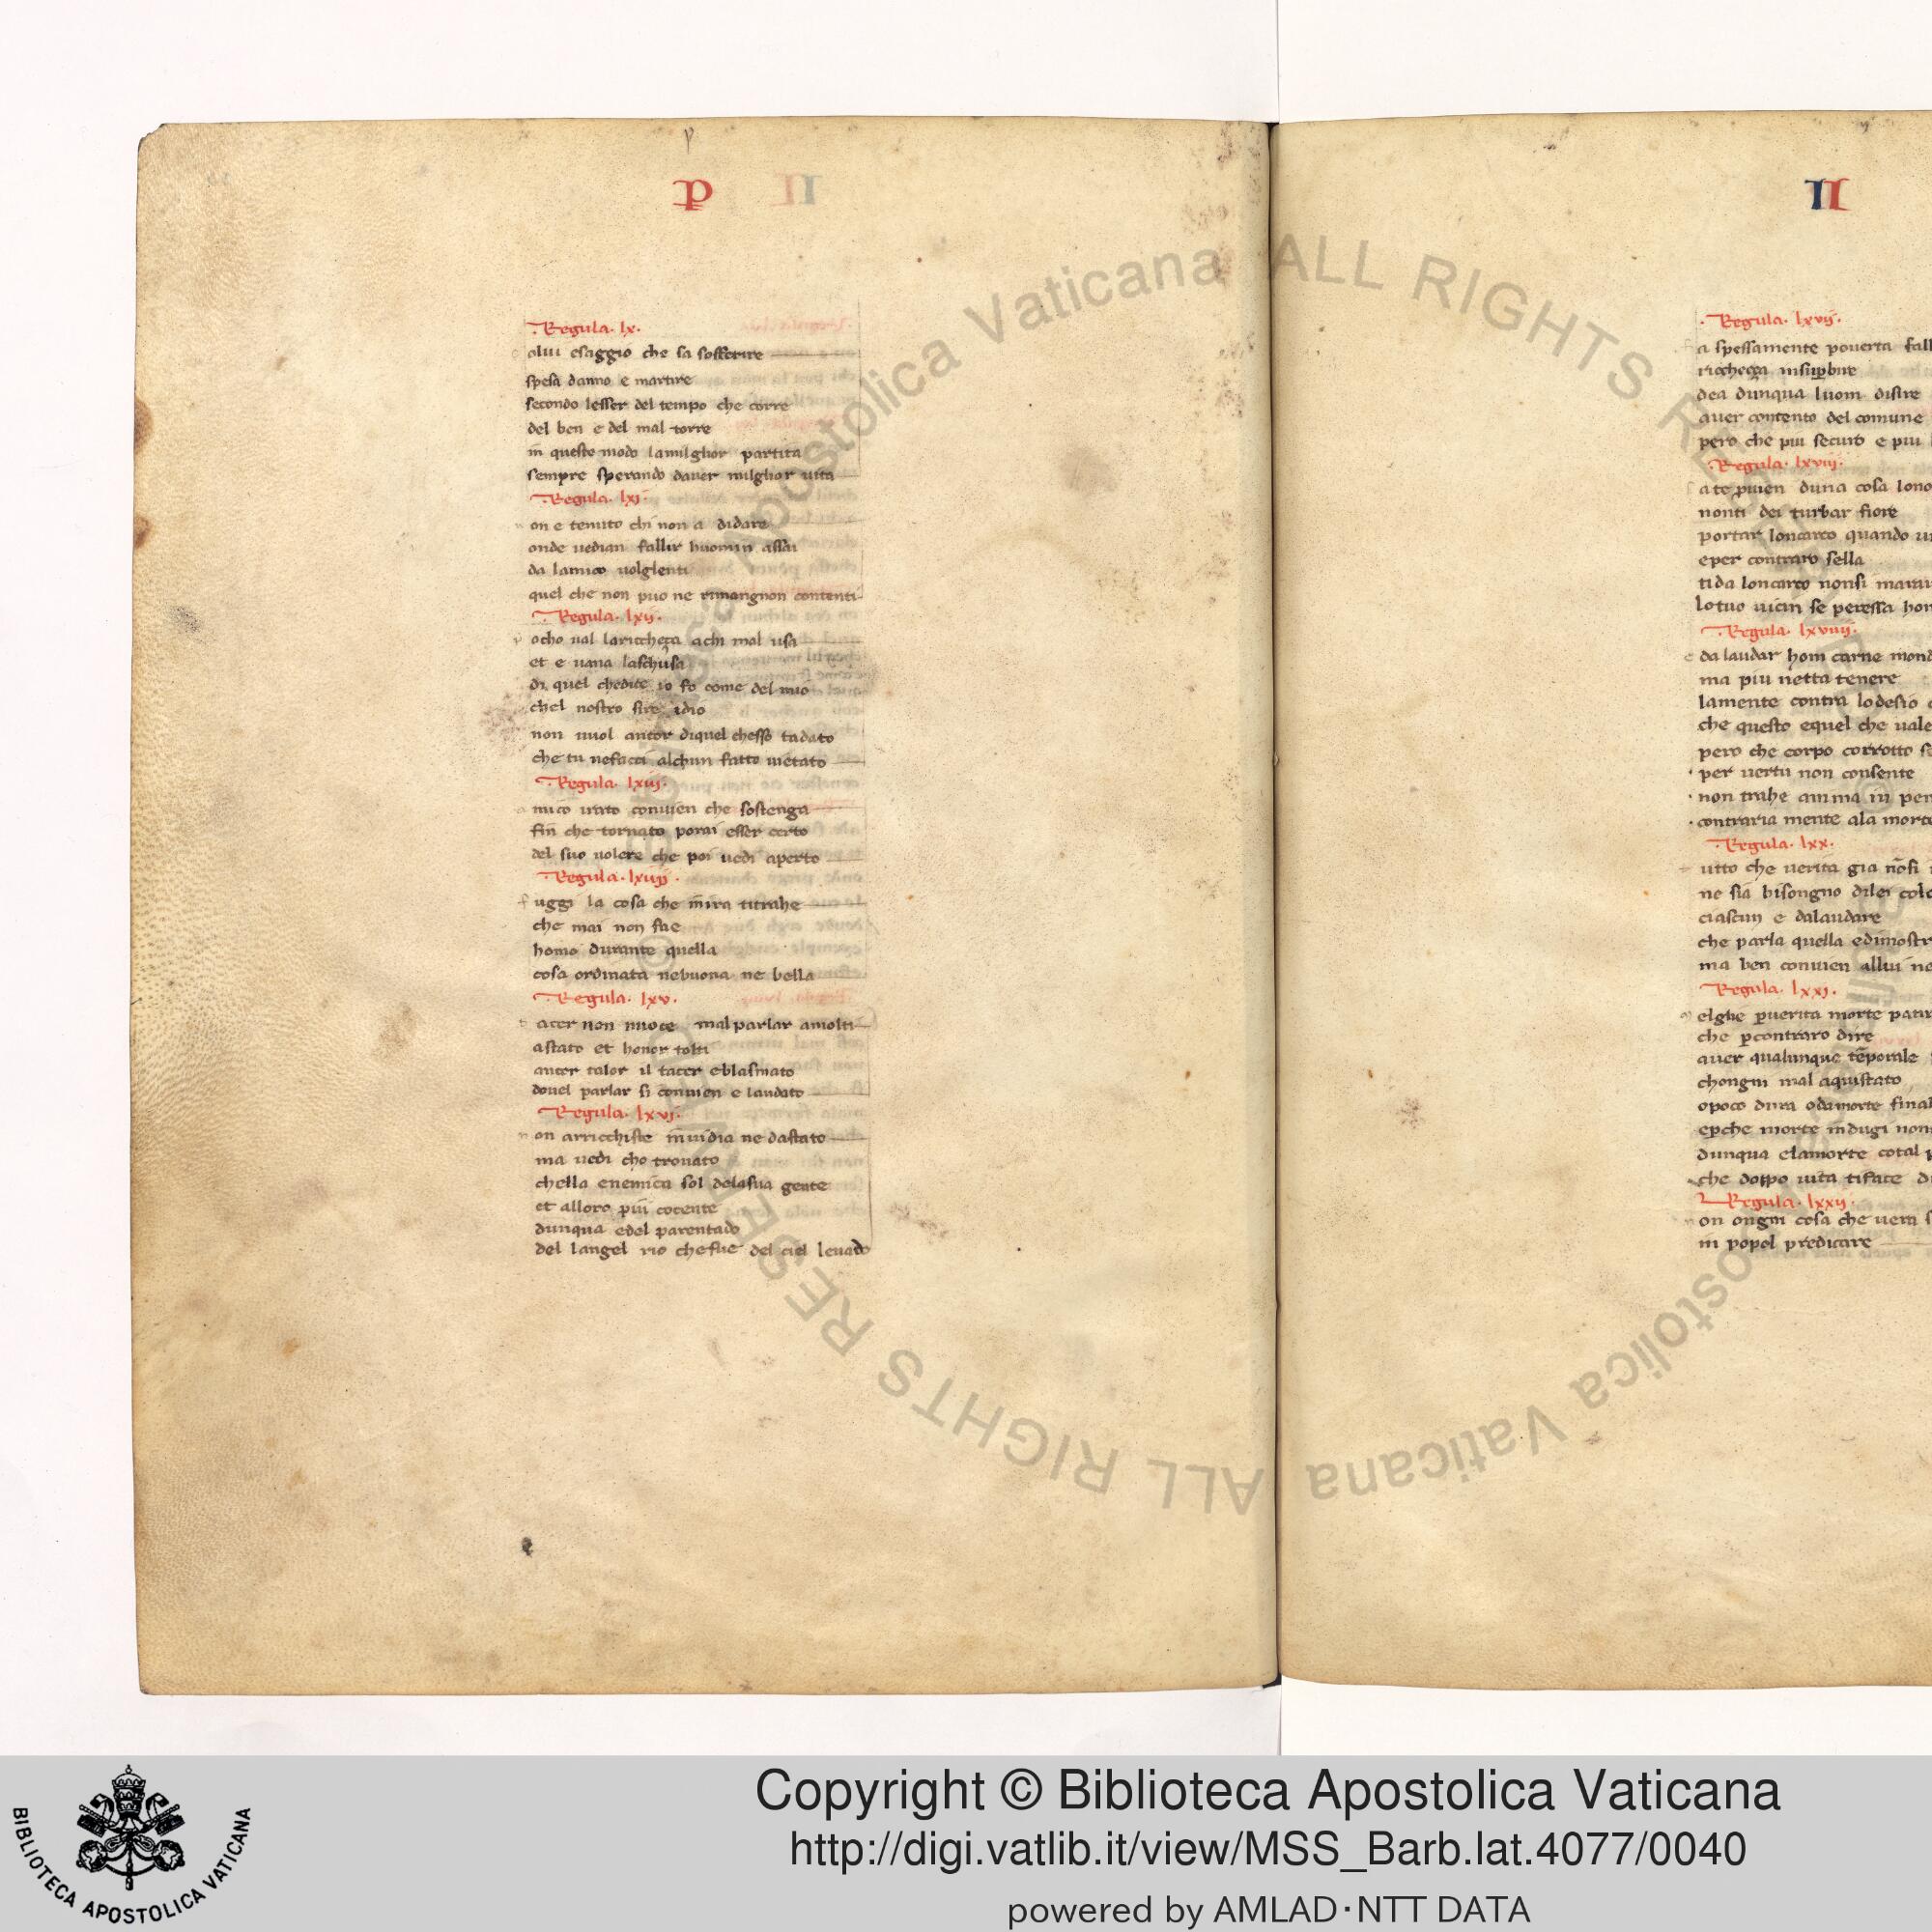 P
II
.Regula. lx.
alui esaggio che sa sofferire
spesa danno e martire
secondo lesser del tempo che corre
del ben e del mal torre
in questo modo lamilglior partita
sempre sperando dauer milglior uita
.Regula. lxi.
on e tenuto chi non a didare
onde uedian fallir huomin assai
da lamico uolglenti
quel che non puo ne rimangnon contenti
.Regula. lxii.
p ocho ual lariccheça achi mal usa
et e uana laschusa
di quel chedice io fo come del mio
chel nostro sire idio
non uuol ancor diquel chesso tadato
che tu nefacci alchun fatto uietato
.Regula. lxiii.
a mico irato conuien che sostenga
fin che tornato porai esser certo
del suo uolere che poi uedi aperto
.Regula. lxiiij.
f uggi la cosa che mira titrahe
che mai non fae
homo durante quella
cosa ordinata nebuona ne bella
.Regula. lxv.
t acer non nuoce mal parlar amolti
astato et honor tolti
ancor talor il tacer eblasmato
douel parlar si conuien e laudato
.Regula. lxvi.
n on arricchiste inuidia ne dastato
ma uedi cho trouato
chella enemica sol delasua gente
et alloro piu cocente
dunqua edel parentado
del langel rio chefue del ciel leuado
.Regula. lxvij.
a spessamente pouerta fall
riccheça insuperbire
dea dunqua luom disire
auer contento del comune
pero che piu securo e piu
.Regula. lxviii.
a te peruien duna cosa lono
nonti dei turbar fiore
portar loncarco quando
eper contraro sella
tida loncarco nonsi marau
lotuo uicin se peressa hon
.Regula. lxviiij.
e da laudar hom carne mond
ma piu netta tenere
lamente contra lodesio
che questo equel che uale
pero che corpo corrotto se
per uertu non consente
non trahe anima in per
contraria mente ala morte
.Regula. lxx.
utto che uerita gia non si
ne sia bisongno dilei cole
ciascun e dalaudare
che parla quella edimostr
ma ben conuien allui
.Regula. lxxi.
elghe peruerita morte patir
che percontraro dire
auer qualunque temporale
chongni mal aquistato
opoco dura odamorte final
eperche morte indugi non
dunqua elamorte cotal
che doppo uita tiface
.Regula. lxxij.
on ongni cosa che uera
in popol predicare
Biblioteca Apostolica Vaticana ALL RIGHTS RESERVED
Copyright © Biblioteca Apostolica Vaticana
http://digi.vatlib.it/view/MSS_Barb.lat.4077/0040
powered by AMLAD·NTT DATA
BIBLIOTECA APOSTOLICA VATICANA